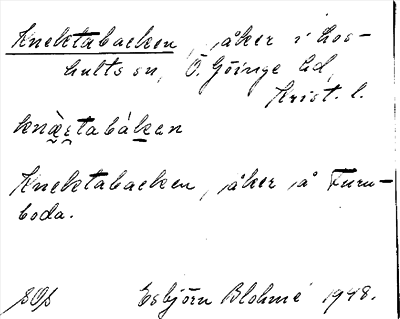 Knektabacken, åker i Los-
hults sn, Ö. Göinge hd,
Krist. l.
knæktabákan
Knektabacken, åker på Furu-
boda.
Esbjörn Blohmé 1948.